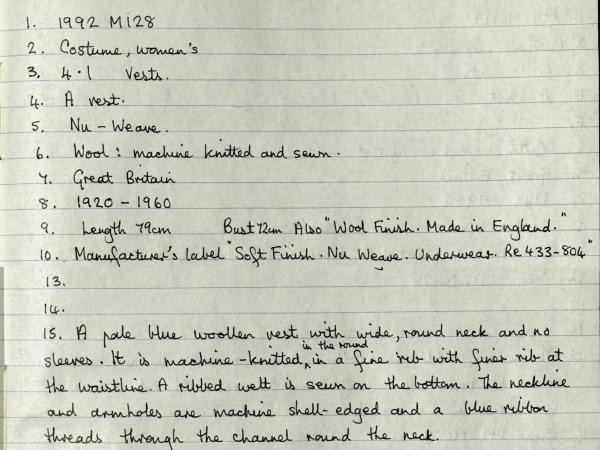 1. 1992 M128
2. Costume, women's
3. 4.1 Vests.
4. A vest.
5. Nu-Weave.
6. Wool: machine knitted and sewn.
7. Great Britain
8. 1920-1960
9. Length 79cm Bust 72cm Also "Wool Finish. Made in England."
10. Manufacturer's label "Soft Finish. Nu Weave. Underwear. Re 433-804"
13.
14.
15. A pale blue woollen vest with wide, round neck and no
in the round
sleeves. It is machine-knitted, in a fine rib with finer rib at
the waistline. A ribbed welt is sewn on the bottom. The neckline
and armholes are machine shell-edged and a blue ribbon
threads through the channel round the neck.